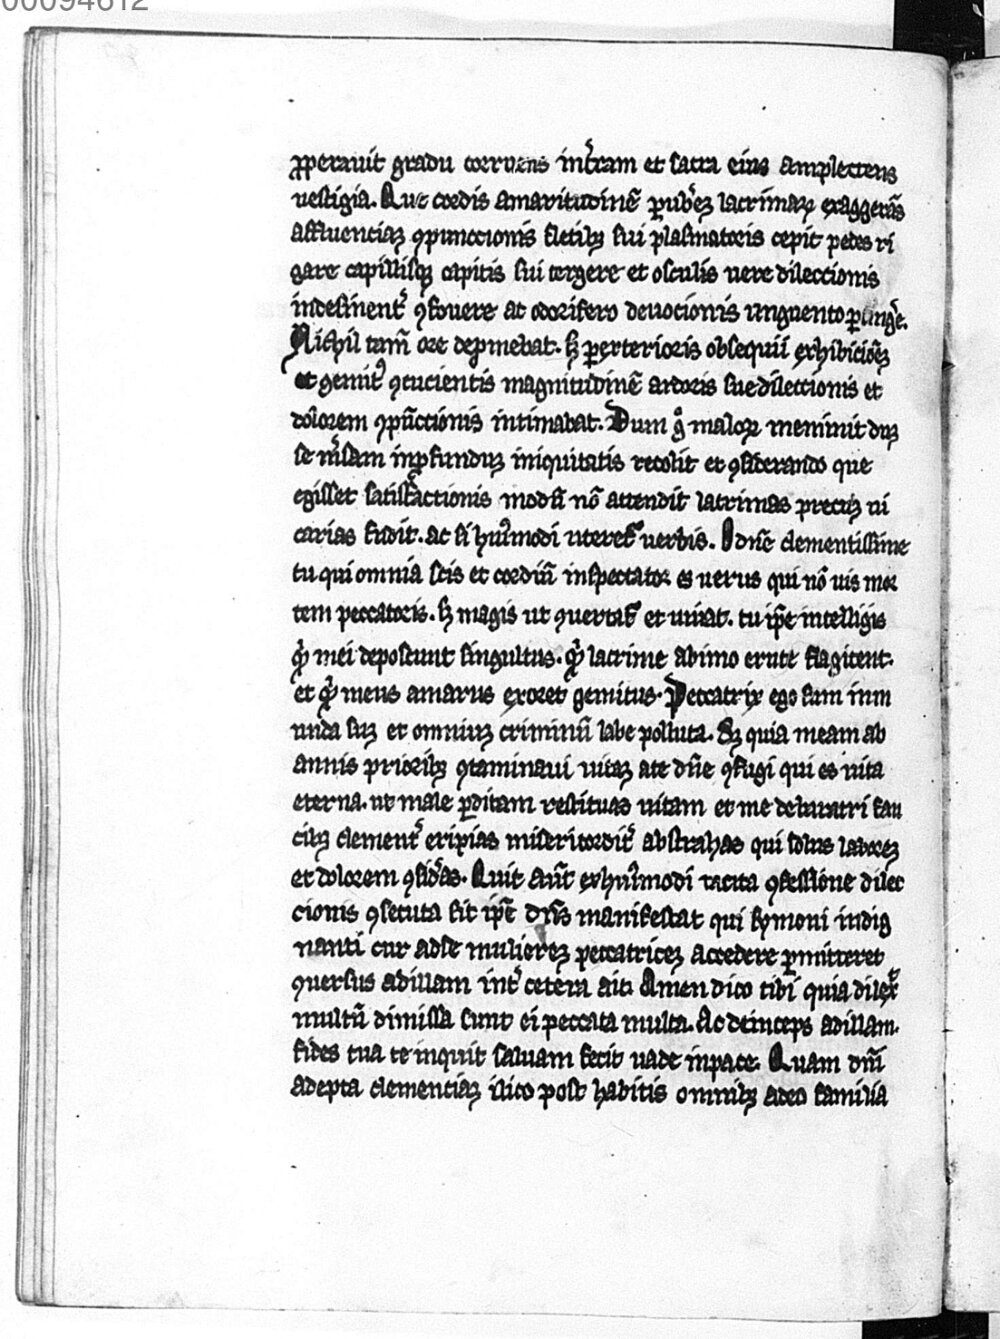 00094612
ꝓperauit gradu corruens int̾ram et sacra eius amplectens
uestigia. Que cordis amaritudinē ꝑ ub̾eꝫ lacrimaꝝ exaggerās
affluenciaꝫ ꝯpunccionis fletibꝫ sui plasmatoris cepit pedes ri
gare capillisqꝫ capitis sui tergere et osculis uere dileccionis
indesinent̾ ꝯfouere ac odorifero deuocionis unguento ꝑunge̾.
Nichil tam̄ ore dep̾mebat. sꝫ ꝑ exterioris obsequii exhibicioēꝫ
et gemit᷒ ꝯcucientis magnitudinē ardoris sue dileccionis et
dolorem ꝯpūccionis intimabat. Dum g̊ maloꝝ meminit duꝫ
se m̾sam in ꝓfunduꝫ iniquitatis recolit et ꝯsiderando que
egisset satisfactionis modū nō attendit lacrimas precuꝫ ui
carias fudit. ac si hui᷒modi uteret᷑ uerbis. O dn̄e clementissime
tu qui omnia scis et cordiū inspectator es uerus qui nō uis mor
tem peccatoris. sꝫ magis ut ꝯuertat᷑ et uiuat. tu ip̄e intelligis
qͥd mei deposcunt singultus. qͥd lacrime ab imo erute flagitent.
et qͥd meus amarus exoret gemitus. Peccatrix ego sum inm
unda suꝫ et omniuꝫ criminū labe polluta. Sꝫ quia meam ab
annis prioribꝫ ꝯtaminaui uitaꝫ a te dn̄e ꝯfugi qui es uita
eterna. ut male ꝑditam restituas uitam et me de baratri fau
cibꝫ clement̾ eripias misericordit̾ abstrahas qui solus laboreꝫ
et dolorem ꝯsid̾as. Quit aūt ex hui᷒modi tacita ꝯfessione dilec
cionis ꝯsecuta sit ip̄e dn̄s manifestat qui symoni indig
nanti cur ad se muliereꝫ peccatriceꝫ accedere ꝑmitteret
ꝯuersus ad illam int̾ cetera ait. Amen dico tibi quia dilex̾
multū dimissa sunt ei peccata multa. Ac deinceps ad illam.
fides tua te inquit saluam fecit uade in pace. Quam dn̄i
adepta clemenciaꝫ ilico post habitis omnibꝫ adeo familia